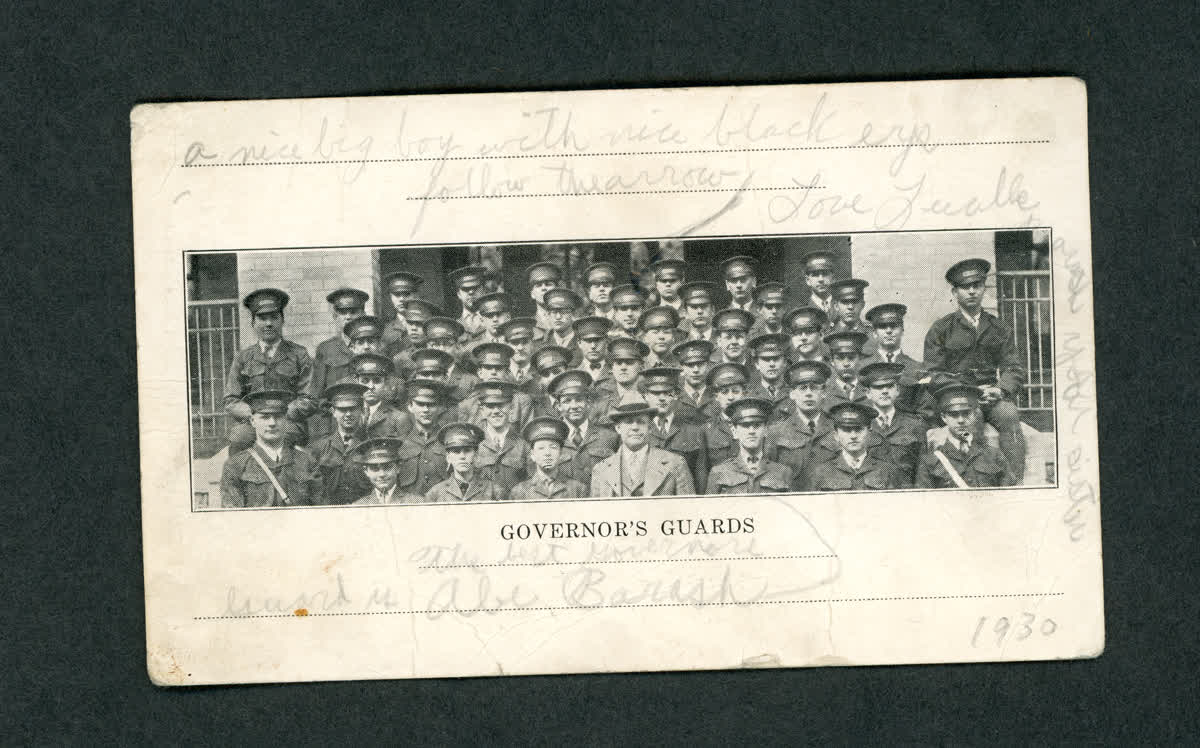 a nice big boy with nice black eys
follow the arrow
Love
GOVERNOR'S GUARDS
The best governors
Guard is Abe Barash
1930